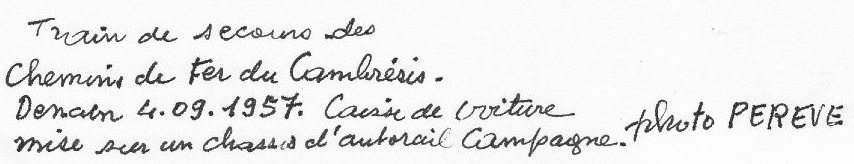 Train de secours des
Chemins de Fer du Cambrésis.
Denain 4.09.1957. Caisse de voiture
mise sur un chassis d'autorail Campagne. photo PEREVE